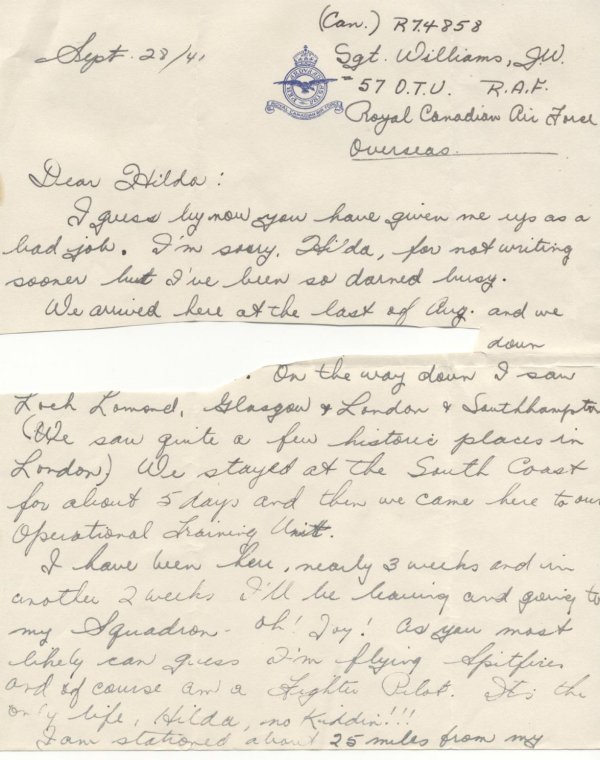 (Can.) R74858
Sept. 28/41
Sgt. Williams, J.W.
57 O.T.U. R.A.F.
ROYAL CANADIAN AIR FORCE
Royal Canadian Air Force
Overseas.
Dear Hilda:
I guess by now you have given me up as a
bad job. I'm sorry, Hilda, for not writing
sooner but I've been so darned busy.
We arrived here at the last of Aug. and we
down
. On the way down I saw
Loch Lomond, Glasgow & London & Southhampton
(We saw quite a few historic places in
London) We stayed at the South Coast
for about 5 days and then we came here to our
Operational Training Unit.
I have been here, nearly 3 weeks and in
another 2 weeks I'll be leaving and going to
my Squadron - Oh! Joy! As you most
likely can guess I'm flying Spitfires
and of course am a Fighter Pilot. It's the
only life, Hilda, no kiddin!!!
I am stationed about 25 miles from my